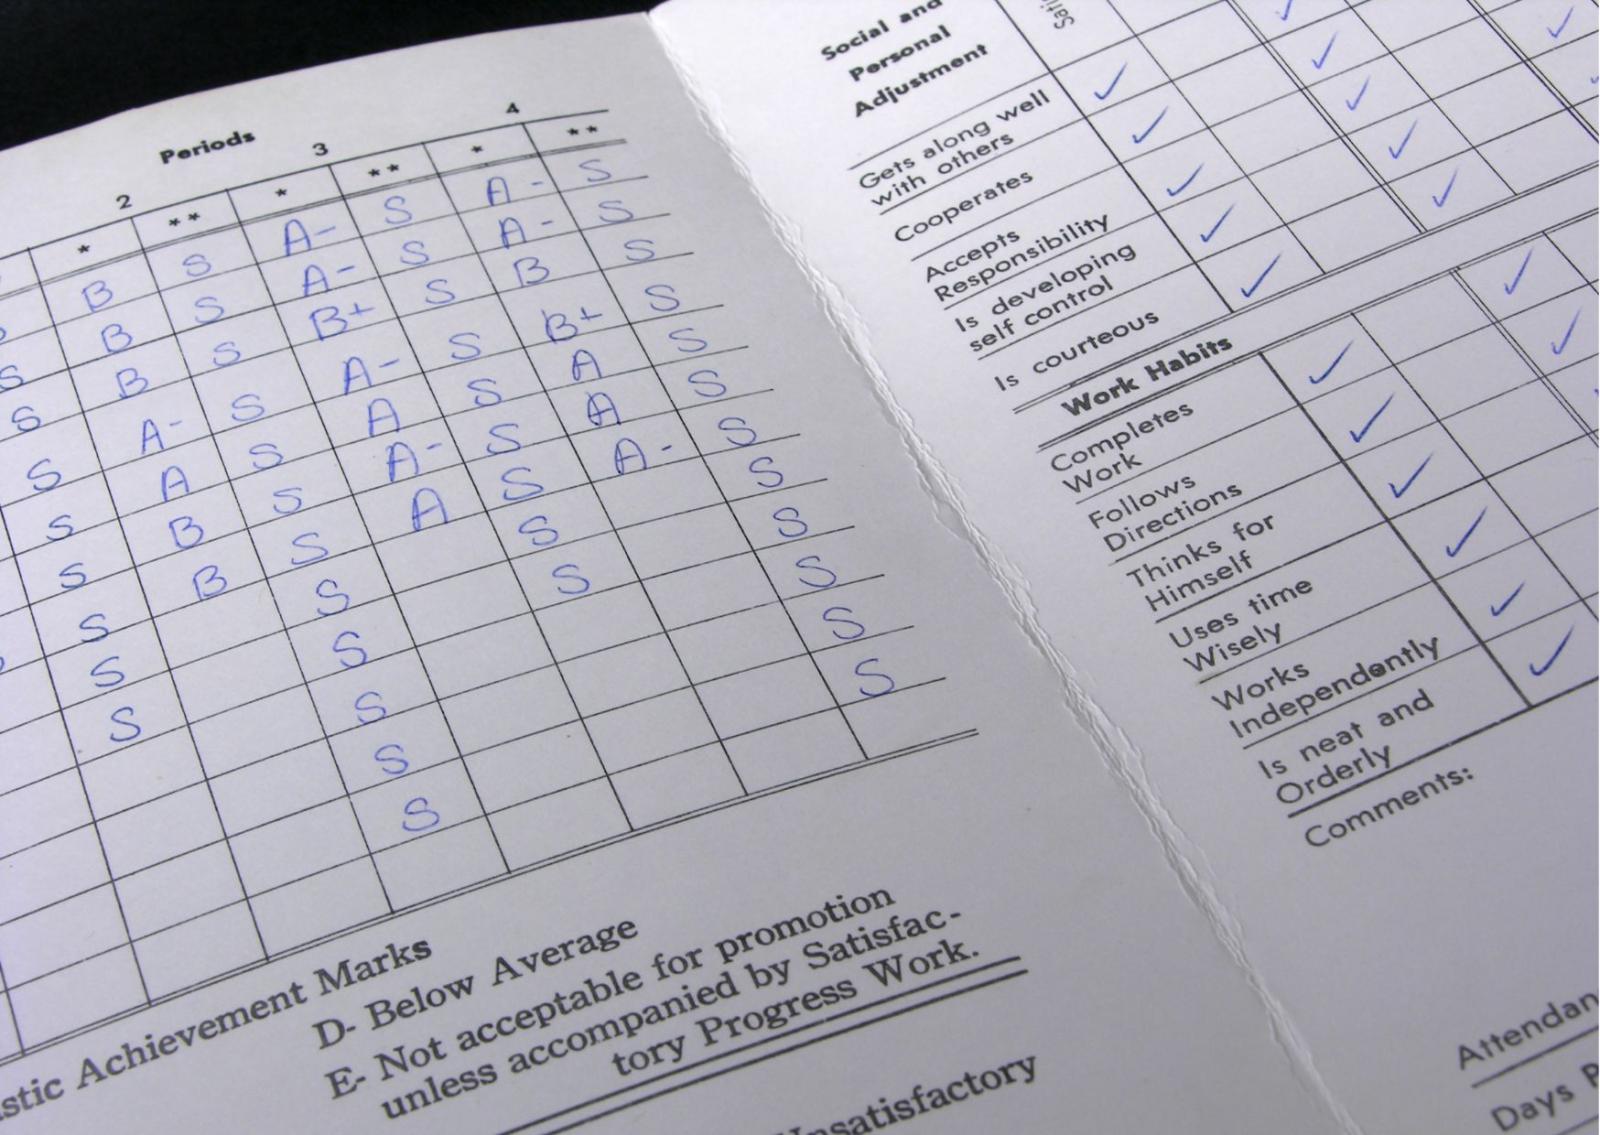 Periods
2 3 4
* ** * ** * **
B S A- S A- S
S B S A- S A- S
S B S B+ S B S
S A- S A- S B+ S
S A S A S A S
S B S A- S A S
S B S A S A- S
S S S S
S S S S
S S
S S
S S
Achievement Marks
D- Below Average
E- Not acceptable for promotion
unless accompanied by Satisfac-
tory Progress Work.
Social and
Personal
Adjustment
Gets along well
with others
Cooperates
Accepts
Responsibility
Is developing
self control
Is courteous
Work Habits
Completes
Work
Follows
Directions
Thinks for
Himself
Uses time
Wisely
Works
Independently
Is neat and
Orderly
Comments:
Days